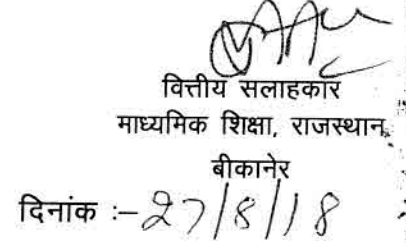 वित्तीय सलाहकार
माध्यमिक शिक्षा, राजस्थान,
बीकानेर
दिनांक :– 27/8/18